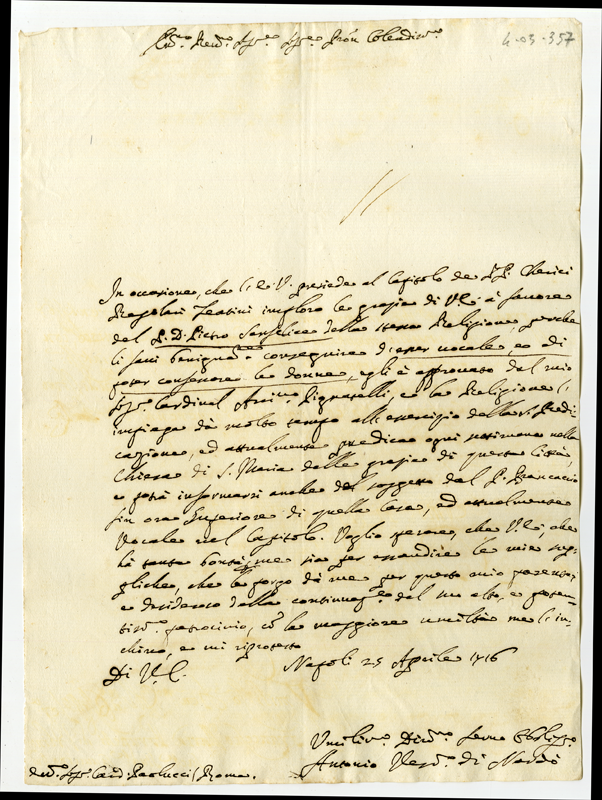 4-03-357
Em.mo Rev.mo Sig.re Sig.re Prõn Colendis.mo
In occasione, che l'E.V. presiede al Capitolo de P.P. Cherici
Regolari Teatini imploro le grazie di V.E. à favore
del P.D. Pietro Sanfelice della stessa Religione, perche
li facci benigna.te conseguire d'esser vocale, e di
poter confessare le donne, egli è approvato dal mio
Sig.r Cardinal Arciv.o Pignatelli, e la Religione l'
impiega da molto tempo all'esercizio della S. Predi
cazione, ed attualmente predica ogni settimana nella
Chiesa di S. Maria delle grazie di questa Città,
e potrà informarsi anche del soggetto dal P. Brancaccio
fin ora Superiore di quella Casa, ed attualmente
Vocale nel Capitolo. Voglio sperare, che V.E., che
hà tanta bontà
che le porgo da me per questo mio parente,
e desideroso della del suo alto, e poten-
tis.o patrocinio, cõ la maggiore umiltà me l'in-
chino, e mi riprotesto
Di V.E. Napoli 25 Aprile 1716
Umiliss.o Div.mo Servo Obblig.mo
Antonio Vesc.o di Nardò
Sig.r Card. Paolucci / Roma.